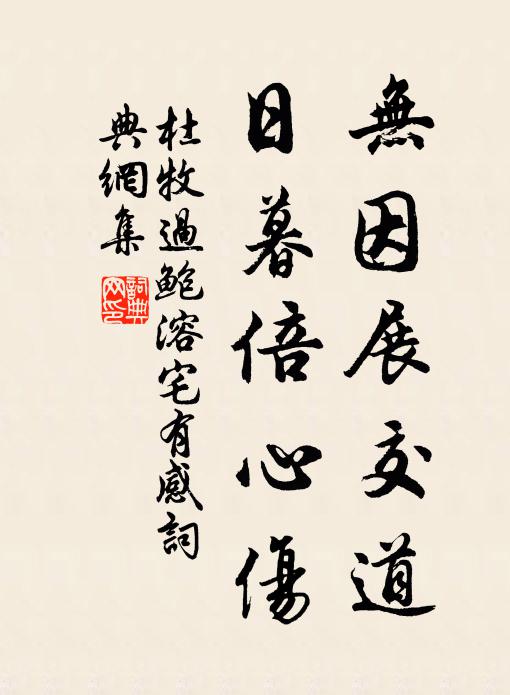 無因展交道
日暮倍心傷
杜牧過鮑溶宅有感詞
典網集
詞典
网印